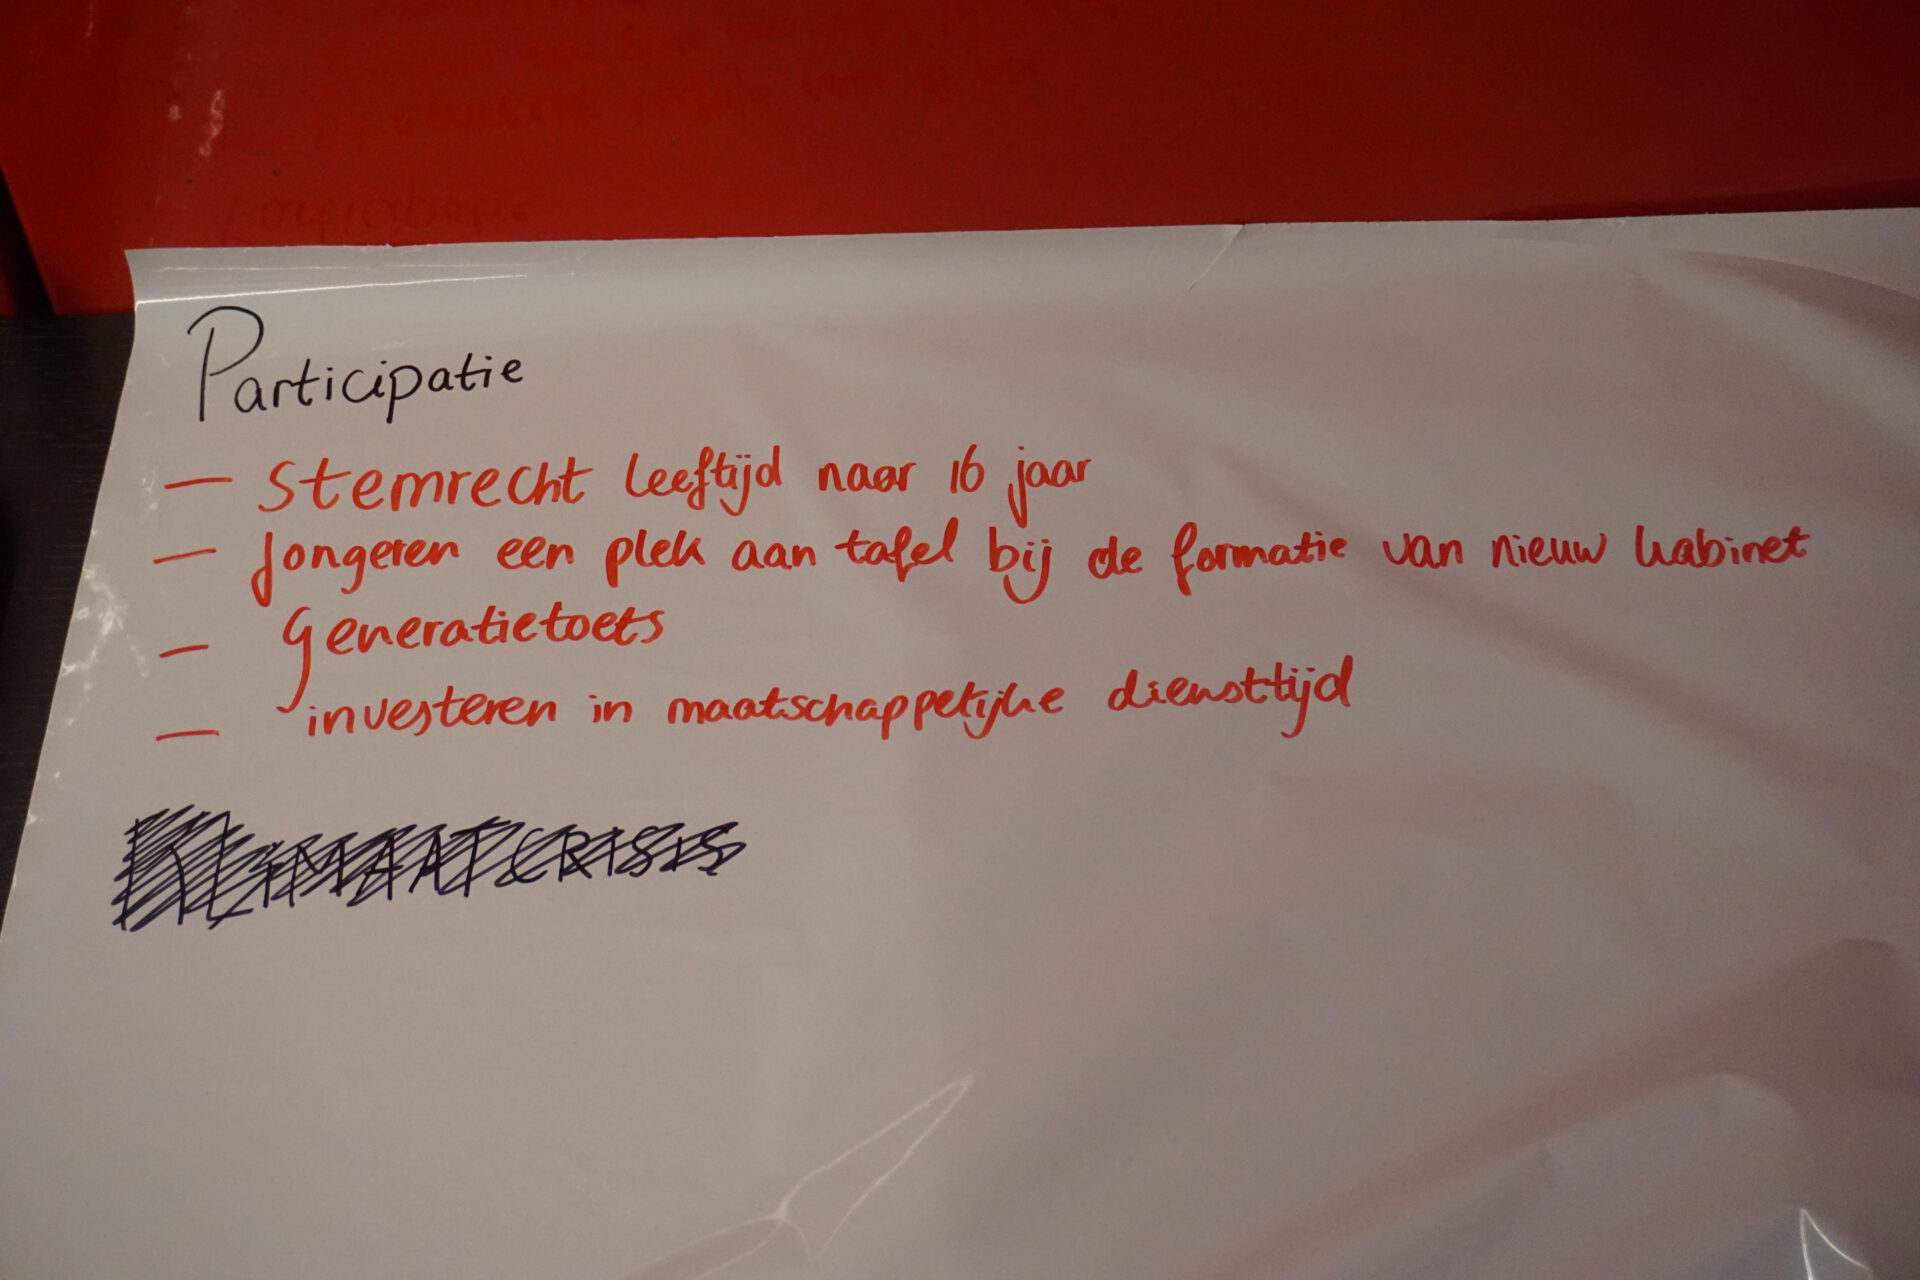 Participatie
— Stemrecht leeftijd naar 16 jaar
— Jongeren een plek aan tafel bij de formatie van nieuw kabinet
— Generatietoets
— investeren in maatschappelijke diensttijd
KLIMAATCRISIS